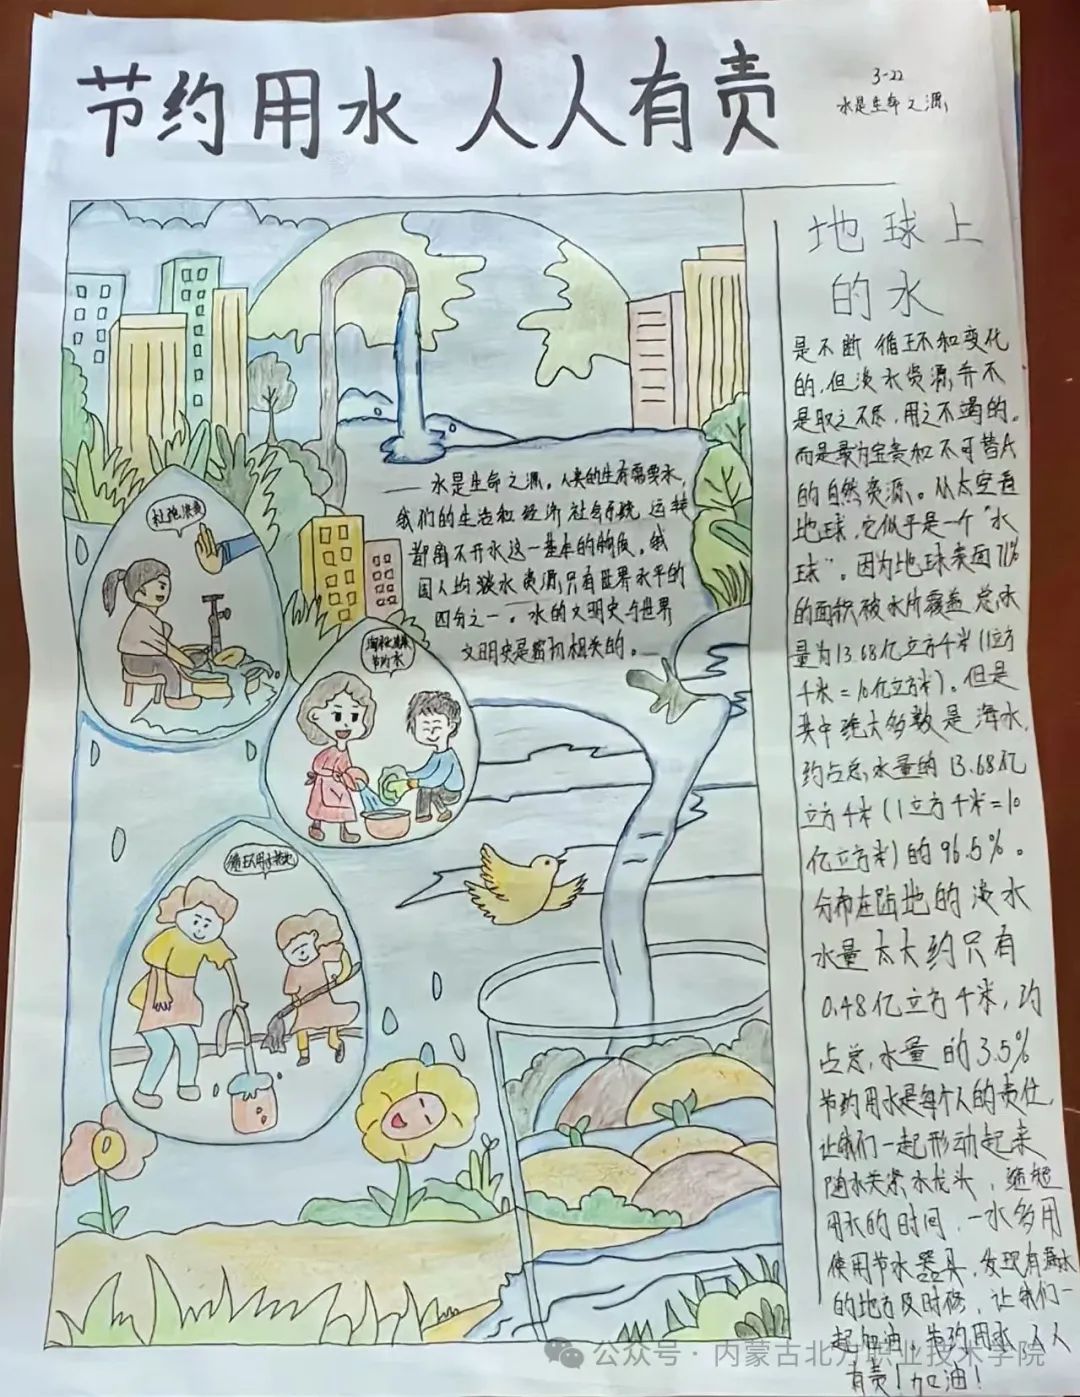 节约用水 人人有责
3-22
水是生命之源
地球上
的水
是不断循环和变化
的,但淡水资源并不
是取之不尽,用之不竭的。
而是最为宝贵和不可替代
的自然资源。从太空看
地球,它似乎是一个“水
球”。因为地球表面71%
的面积被水所覆盖 总水
量为13.68亿立方千米(1立方
千米=10亿立方米)。但是
其中绝大多数是海水,
约占总水量的13.68亿
立方千米(1立方千米=10
亿立方米)的96.5%。
分布在陆地的淡水
水量太大约只有
0.48亿立方千米,约
占总水量的3.5%
节约用水是每个人的责任,
让我们一起形动起来
随水关紧水龙头,缩短
用水的时间,一水多用
使用节水器具,发现有漏水
的地方及时修,让我们一
起加油,节约用水 人人
有责!加油!
水是生命之源。人类的生存需要水,
我们的生活和经济社会系统运转
都离不开水这一基本的物质。我
国人均淡水资源只有世界水平的
四分之一。水的文明史与世界
文明史是密切相关的。
杜绝浪费
淘米洗菜
节约水
循环用水拖地
公众号·内蒙古北方职业技术学院